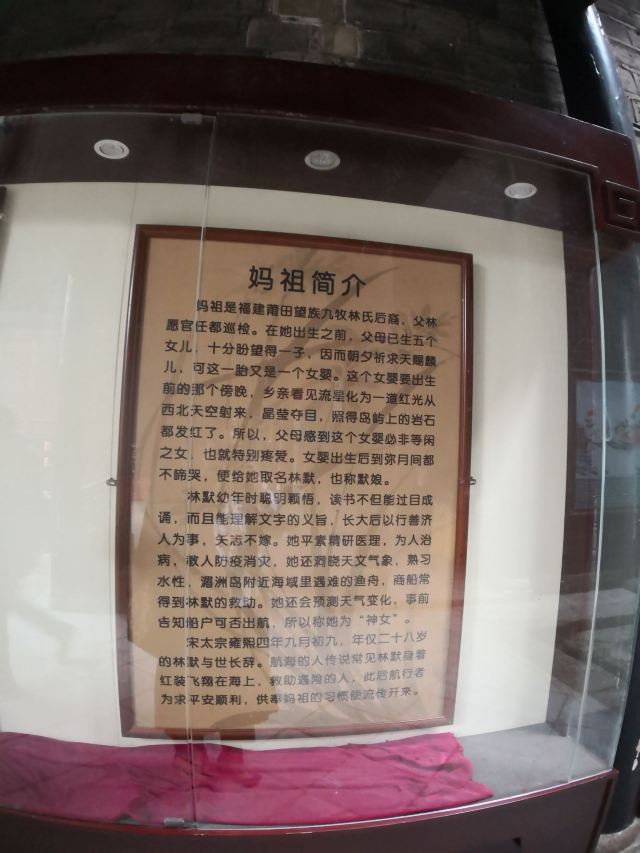 妈祖简介
妈祖是福建莆田望族九牧林氏后裔，父林
愿官任都巡检。在她出生之前，父母已生五个
女儿，十分盼望得一子，因而朝夕祈求天赐麟
儿，可这一胎又是一个女婴。这个女婴要出生
前的那个傍晚，乡亲看见流星化为一道红光从
西北天空射来，晶莹夺目，照得岛屿上的岩石
都发红了。所以，父母感到这个女婴必非等闲
之女，也就特别疼爱。女婴出生后到弥月间都
不啼哭，便给她取名林默，也称默娘。
林默幼年时聪明颖悟，读书不但能过目成
诵，而且能理解文字的义旨，长大后以行善济
人为事，矢志不嫁。她平素精研医理，为人治
病，教人防疫消灾，她还洞晓天文气象，熟习
水性，湄洲岛附近海域里遇难的渔舟，商船常
得到林默的救助。她还会预测天气变化，事前
告知船户可否出航，所以称她为“神女”。
宋太宗雍熙四年九月初九，年仅二十八岁
的林默与世长辞。航海的人传说常见林默身着
红装飞翔在海上，救助遇险的人，此后航行者
为求平安顺利，供奉妈祖的习惯便流传开来。